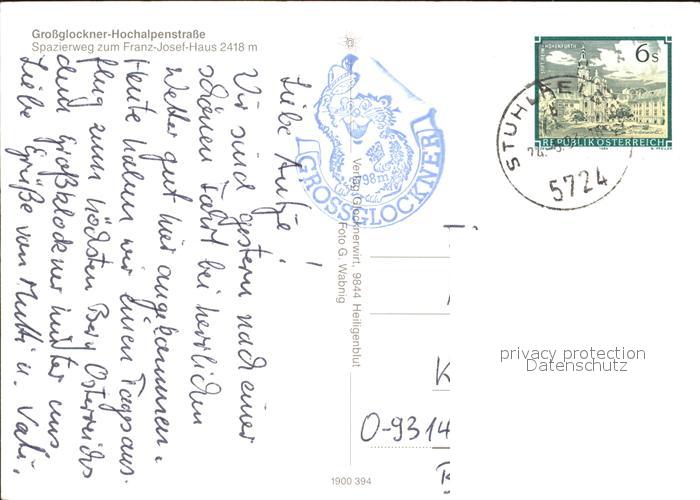 Großglockner-Hochalpenstraße
Spazierweg zum Franz-Josef-Haus 2418 m
Liebe Antje!
Wir sind gestern nach einer
schönen Fahrt bei herrlichem
Wetter gut hier angekommen.
Heute haben wir einen Tagsaus-
flug zum höchsten Berg Österreichs
dem Großklockner hinter uns
Liebe Grüße von Mutti u. Vati.
GROSSGLOCKNER
3798m
Verlag Glocknerwirt, 9844 Heiligenblut
Foto G. Wabnig
1900 394
6 S
REPUBLIK ÖSTERREICH
5724
K
O-9314
privacy protection
Datenschutz